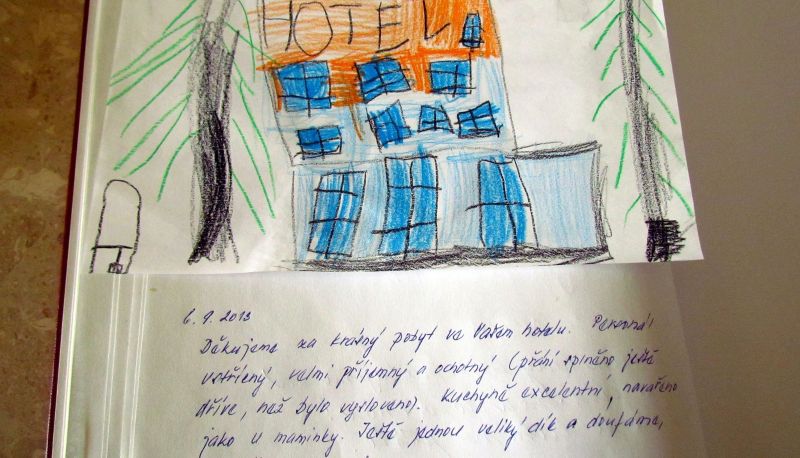 HOTEL
6. 9. 2013
Děkujeme za krásný pobyt ve Vašem hotelu. Personál
vstřícný, velmi příjemný a ochotný (přání splněno ještě
dříve, než bylo vysloveno). Kuchyně excelentní, navařeno
jako u maminky. Ještě jednou veliký dík a doufáme,